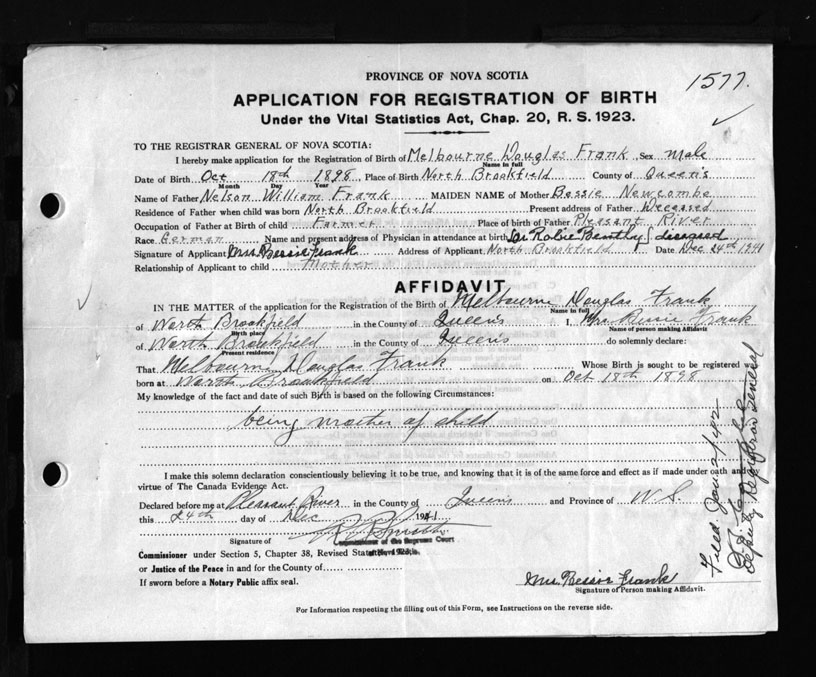 1577.
PROVINCE OF NOVA SCOTIA
APPLICATION FOR REGISTRATION OF BIRTH
Under the Vital Statistics Act, Chap. 20, R. S. 1923.
TO THE REGISTRAR GENERAL OF NOVA SCOTIA:
I hereby make application for the Registration of Birth of Melbourne Douglas Frank Sex Male
Name in full
Date of Birth Oct 18th 1898 Place of Birth North Brookfield County of Queen's
Month Day Year
Name of Father Nelson William Frank MAIDEN NAME of Mother Bessie Newcombe
Residence of Father when child was born North Brookfield Present address of Father Deceased
Occupation of Father at Birth of child Farmer Place of birth of Father Pleasant River
Race German Name and present address of Physician in attendance at birth Dr Robie
Signature of Applicant Mrs Bessie Frank Address of Applicant North Brookfield Date Dec 24th 1941
Relationship of Applicant to child Mother
AFFIDAVIT
IN THE MATTER of the application for the Registration of the Birth of Melbourne Douglas Frank
Name in full
of North Brookfield in the County of Queens I, Mrs Frank
Birth place Name of person making Affidavit
of North Brookfield in the County of Queens do solemnly declare:
Present residence
That Melbourne Douglas Frank Whose Birth is sought to be registered was
born at North Brookfield on Oct 18th 1898
My knowledge of the fact and date of such Birth is based on the following Circumstances:
being mother of child
I make this solemn declaration conscientiously believing it to be true, and knowing that it is of the same force and effect as if made under oath and by
virtue of The Canada Evidence Act.
Declared before me at Pleasant River in the County of Queens and Province of N. S.
this 24th day of Dec 1941
Signature of
Commissioner of the Supreme Court
Commissioner under Section 5, Chapter 38, Revised Statutes
or Justice of the Peace in and for the County of
If sworn before a Notary Public affix seal.
Mrs Bessie Frank
Signature of Person making Affidavit.
For Information respecting the filling out of this Form, see Instructions on the reverse side.
Filed Jan 2/42
Deputy Registrar General